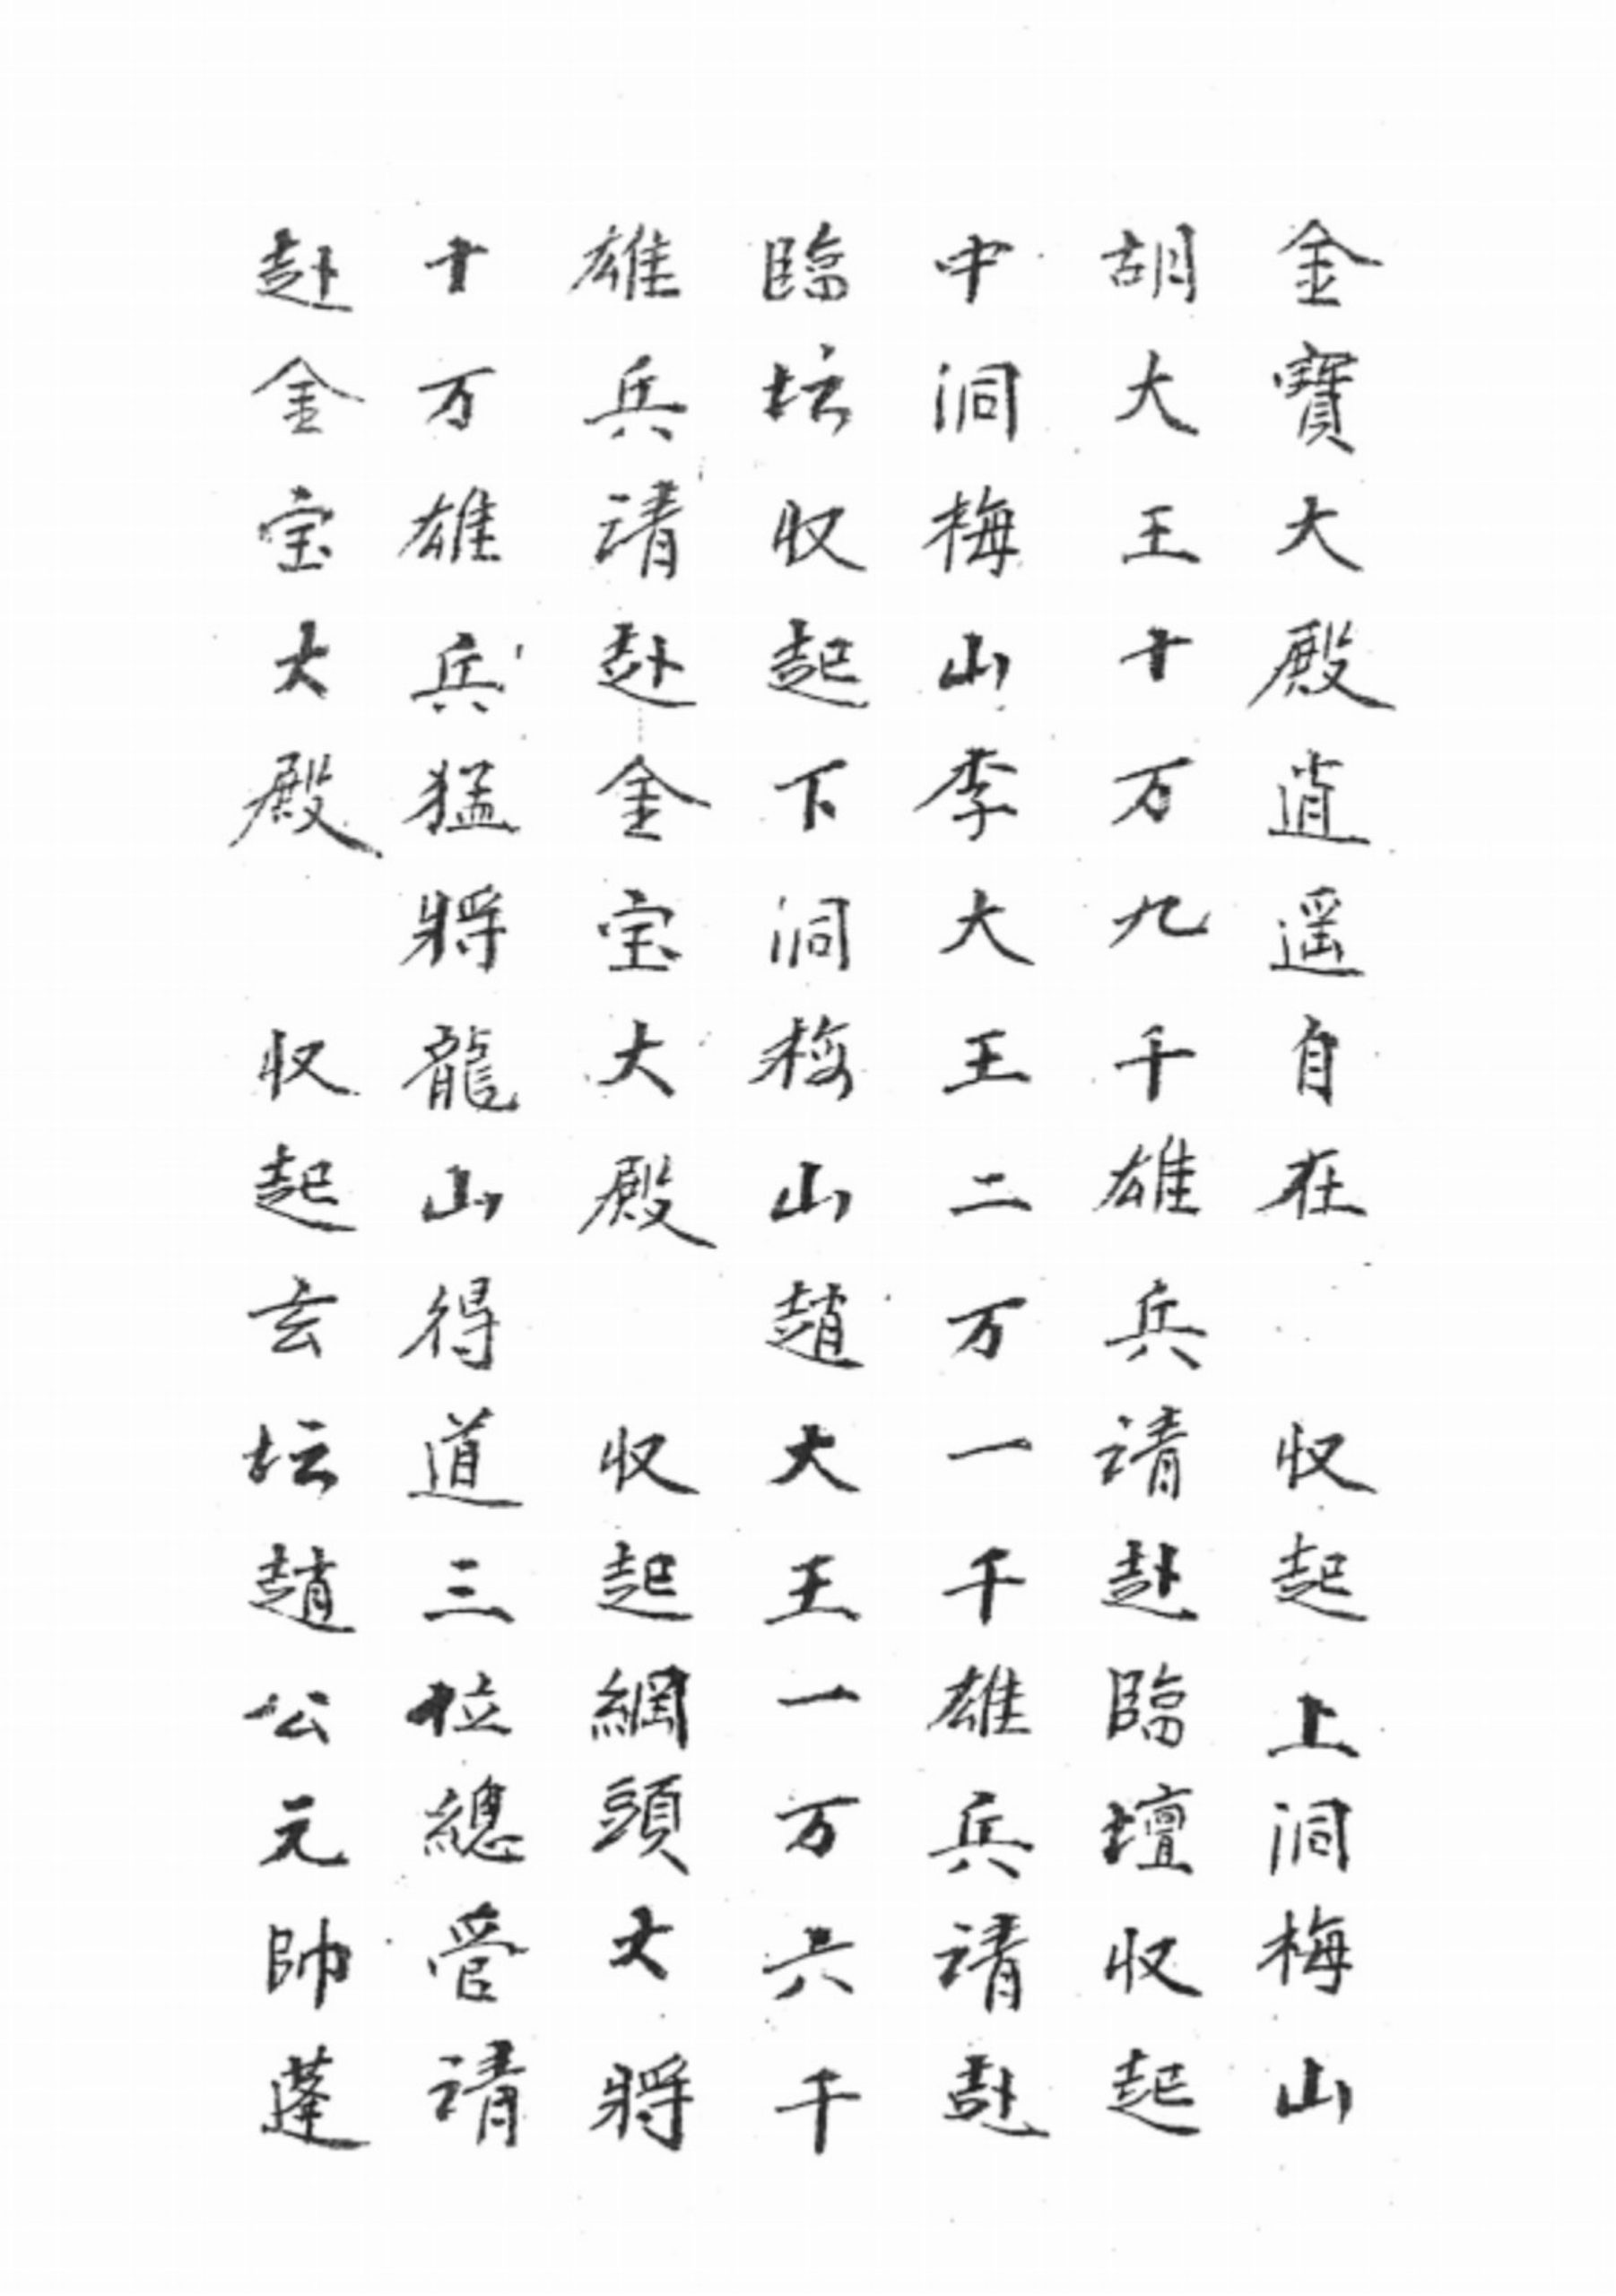 金寶大殿逍遥自在　收起上洞梅山
胡大王十万九千雄兵請赴臨壇收起
中洞梅山李大王二万一千雄兵請赴
臨坛收起下洞梅山趙大王一万六千
雄兵請赴金宝大殿　收起網頭大將
十万雄兵猛將龍山得道三位總管請
赴金宝大殿　收起玄坛趙公元帥蓬